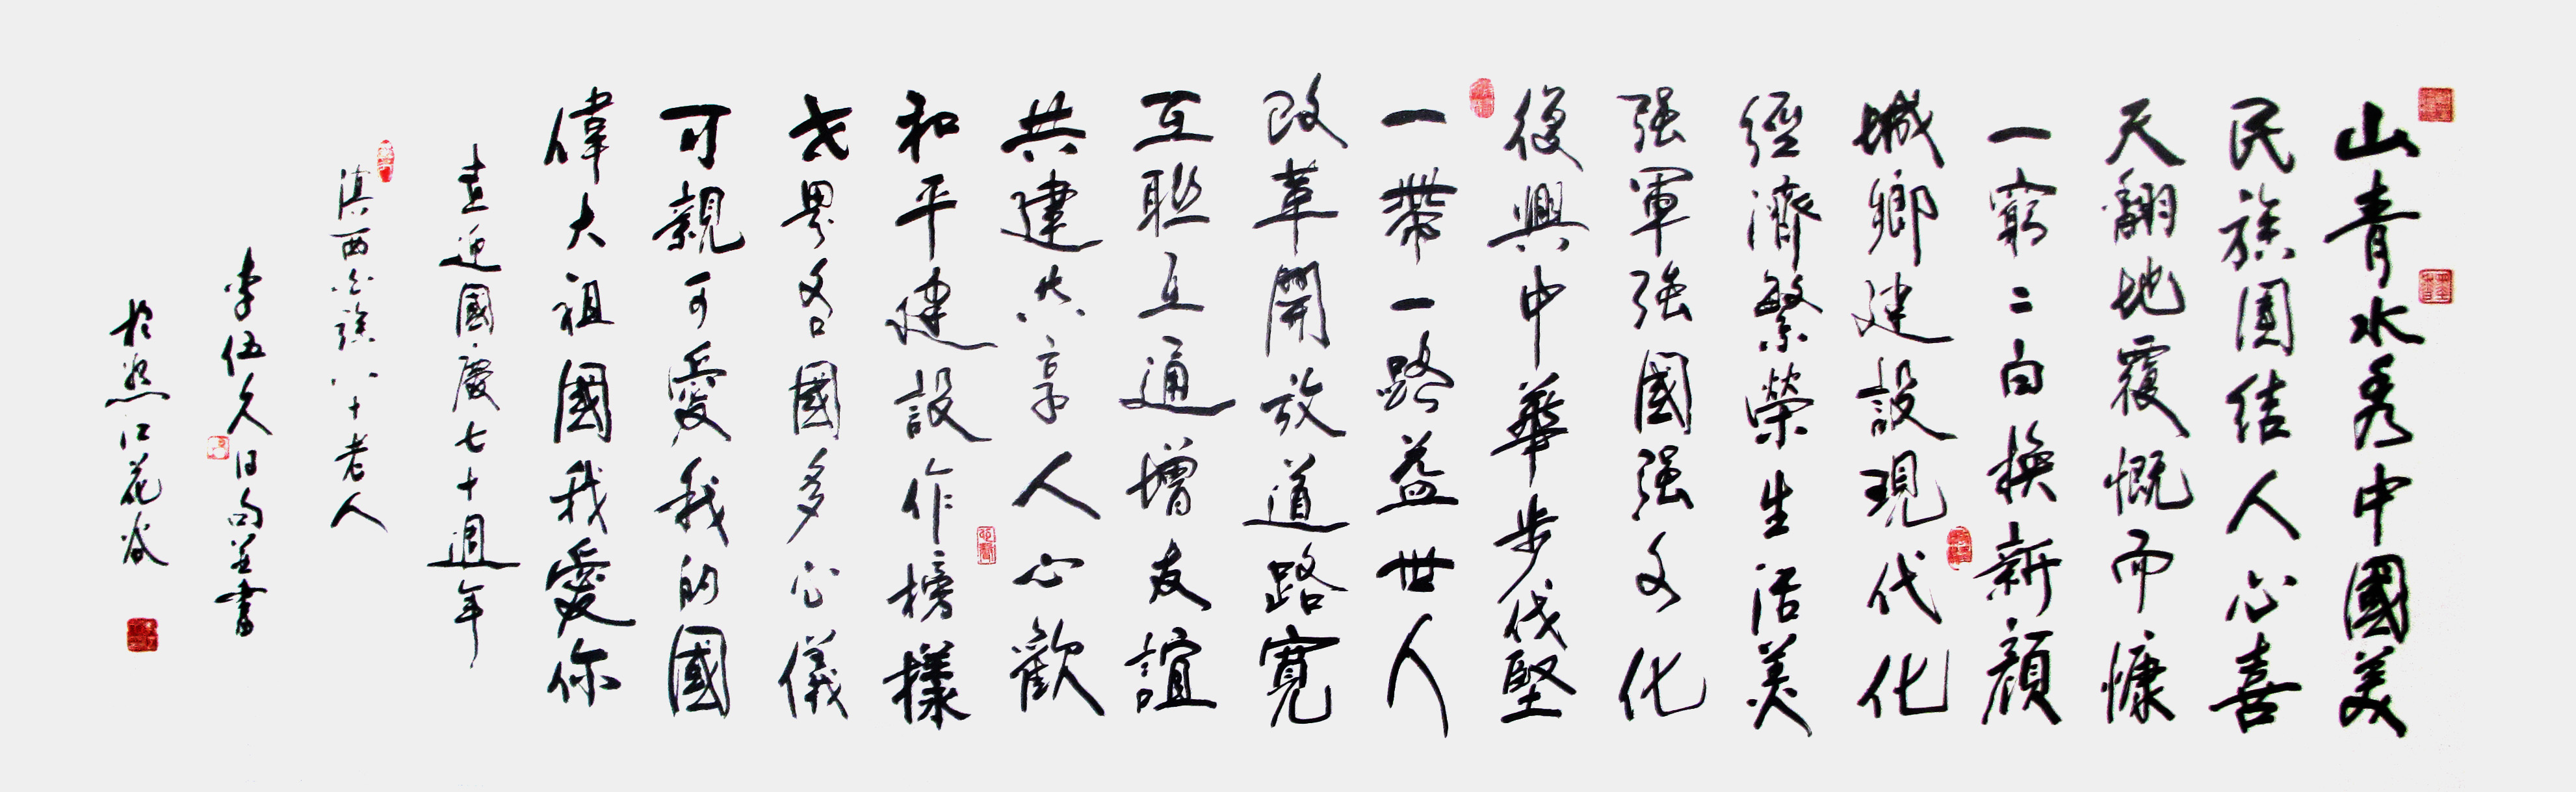 山青水秀中國美
民族團结人心喜
天翻地覆慨而慷
一窮二白换新顔
城鄉建設現代化
經濟繁榮生活美
强軍强國强文化
復興中華步伐堅
一帶一路益世人
改革開放道路寬
互聯互通增友誼
共建共享人心歡
和平建設作榜樣
世界各國多心儀
可親可愛我的國
偉大祖國我愛你
喜迎國慶七十週年
滇西白族八十老人
李伍久自句並書
於怒江花谷